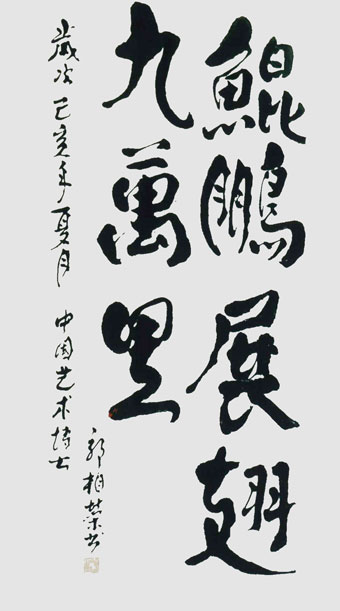 鯤鵬展翅
九萬里
歲次己亥年夏月 中国艺术博士
郭相榮书